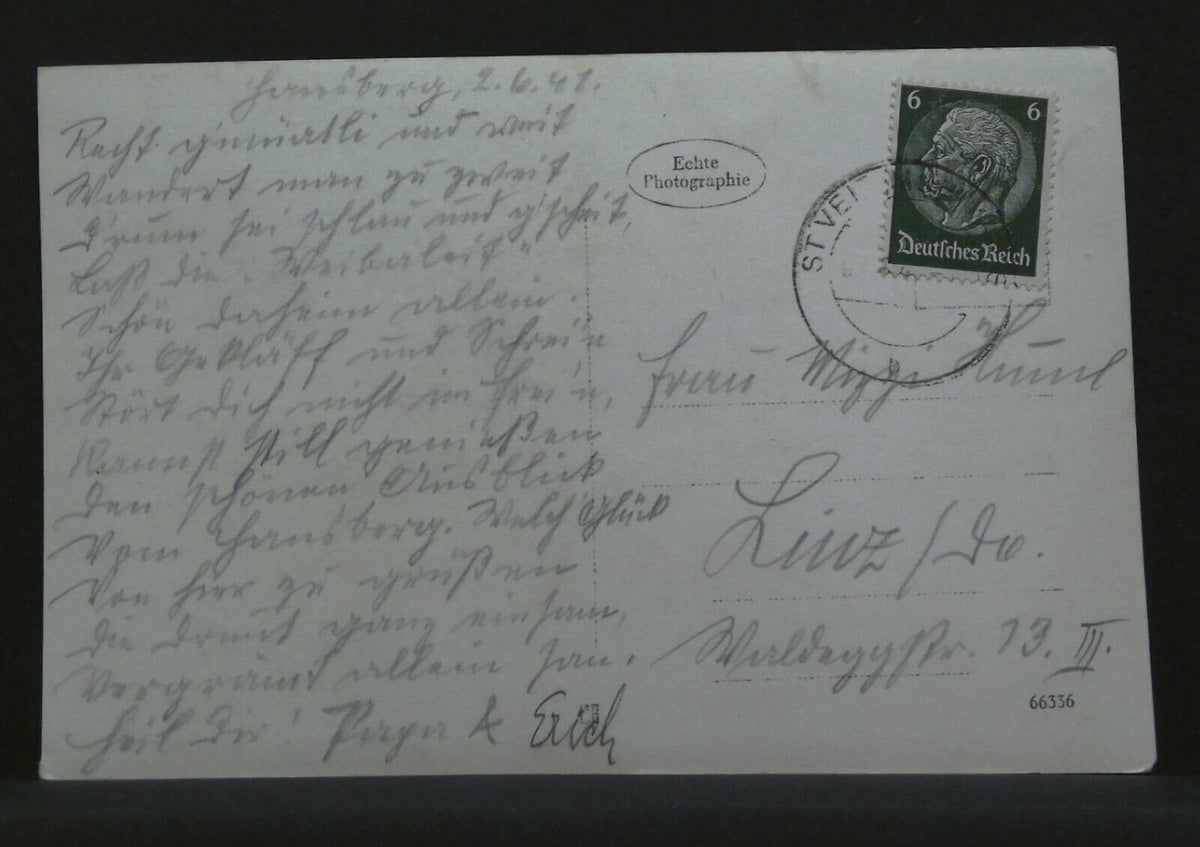 Hansberg, 2.6.41.
Recht g'müatli und weit
Wandert man zu zweit
D'rum sei schlau und g'scheit,
Laß die „Weibaleit"
Schön daheim allein.
Ihr Gekläff und Schrein
Stört Dich nicht im Frei'n,
Kannst still genießen
Den schönen Ausblick
Vom Hansberg. Welch Glück
Von hier zu grüßen
Die dort ganz einsam,
Vergrämt allein san.
Heil Dir! Papa & Erich
Echte
Photographie
6 6
Deutsches Reich
ST VEI
Frau Mizzi
Linz/Do.
Waldeggstr. 13. III.
66336